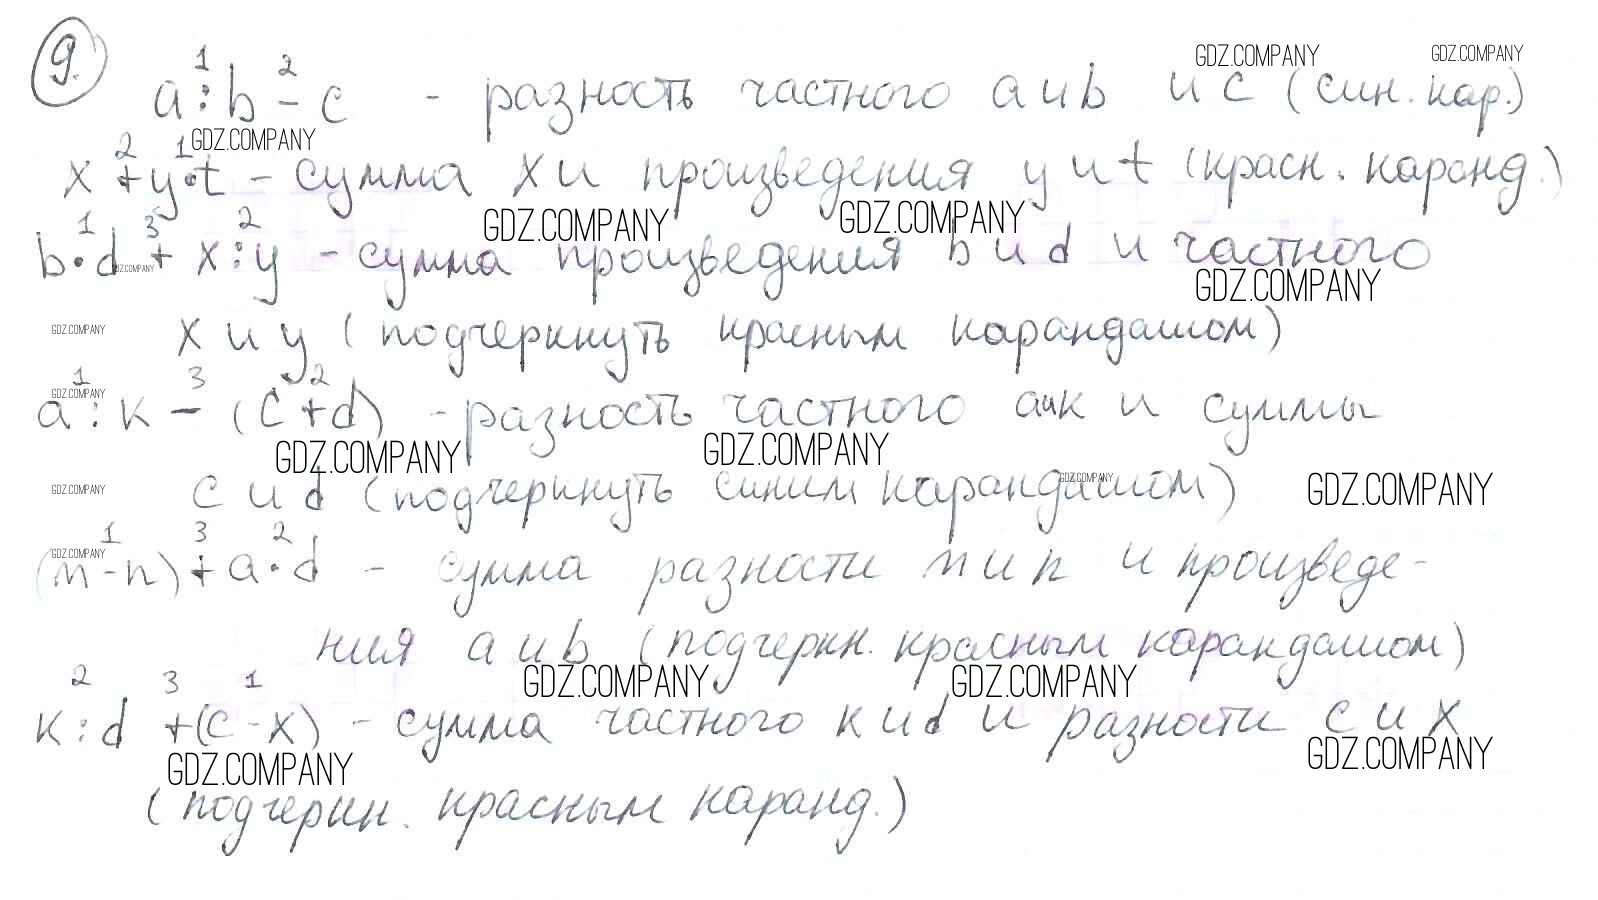 9.
1 2
a : b - c - разность частного a и b и c (син. кар.)
2 1
x + y · t - сумма x и произведения y и t (красн. каранд.)
1 3 2
b · d + x : y - сумма произведения b и d и частного
x и y (подчеркнуть красным карандашом)
1 3 2
a : к - (c + d) - разность частного a и к и суммы
c и d (подчеркнуть синим карандашом)
1 3 2
(m - n) + a · d - сумма разности m и n и произведе-
ния a и b (подчеркн. красным карандашом)
2 3 1
к : d + (c - x) - сумма частного к и d и разности c и x
(подчеркн. красным каранд.)
GDZ.COMPANY GDZ.COMPANY
GDZ.COMPANY
GDZ.COMPANY GDZ.COMPANY
GDZ.COMPANY GDZ.COMPANY
GDZ.COMPANY
GDZ.COMPANY
GDZ.COMPANY GDZ.COMPANY
GDZ.COMPANY GDZ.COMPANY GDZ.COMPANY
GDZ.COMPANY
GDZ.COMPANY GDZ.COMPANY
GDZ.COMPANY GDZ.COMPANY